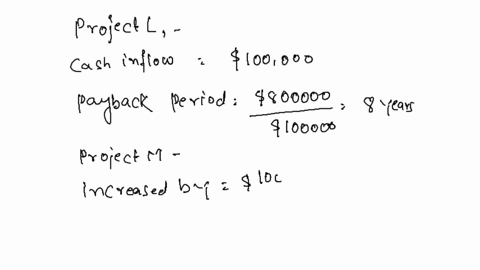 Project L, -
Cash inflow = $100,000
Payback Period = $800000 / $100000 = 8 years
Project M -
Increased by = $100